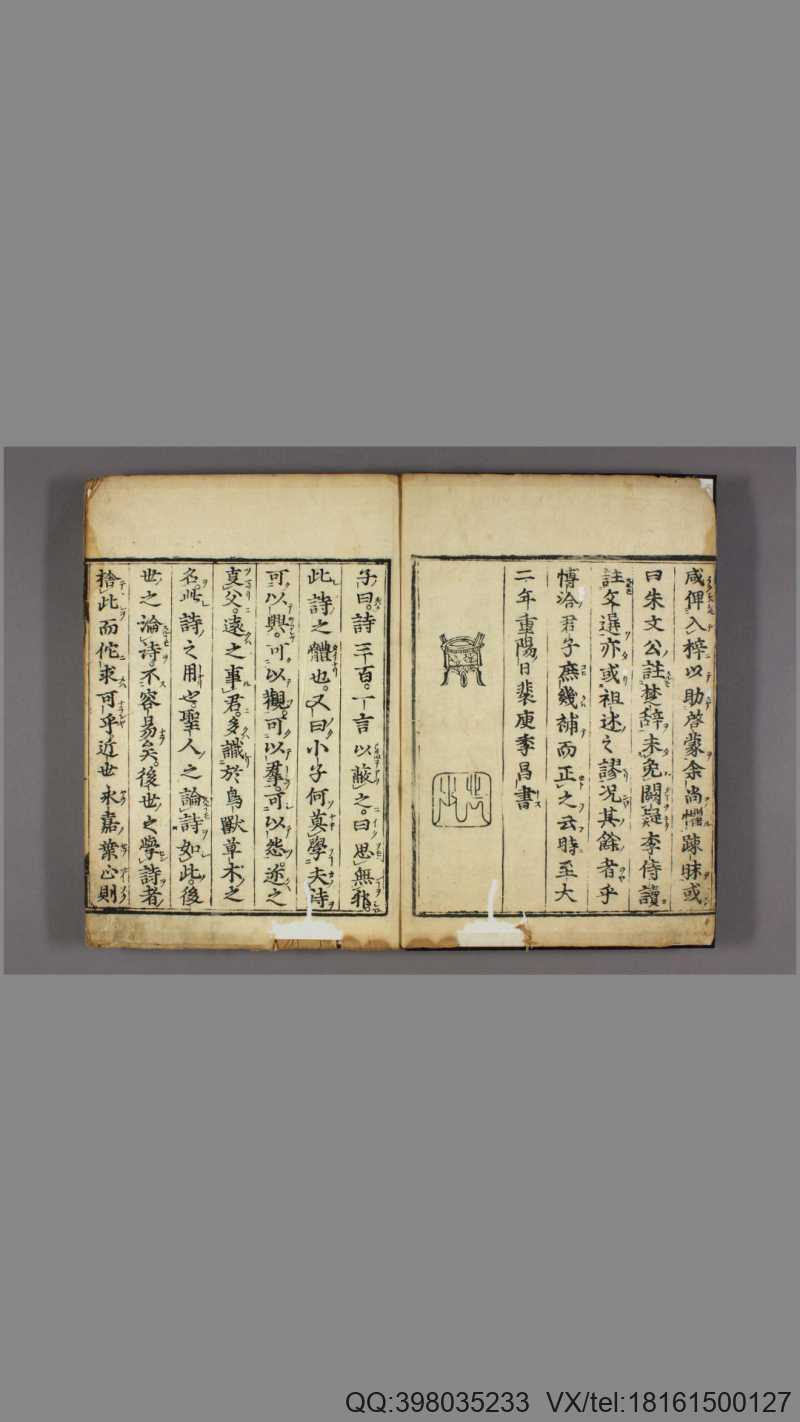 咸俾入梓以助啓蒙余尚懼踈昧或
曰朱文公註楚辭未免闕疑李侍讀
註文選亦或祖述之謬况其餘者乎
愽洽君子庶幾補而正之云時至大
二年重陽日裴庾季昌書
子曰詩三百一言以蔽之曰思無邪
此詩之體也又曰小子何莫學夫詩
可以興可以觀可以羣可以怨迩之
事父遠之事君多識於鳥獸草木之
名此詩之用也聖人之論詩如此後
世之論詩不容易矣後世之學詩者
捨此而佗求可乎近世永嘉葉正則
QQ:398035233 VX/tel:18161500127